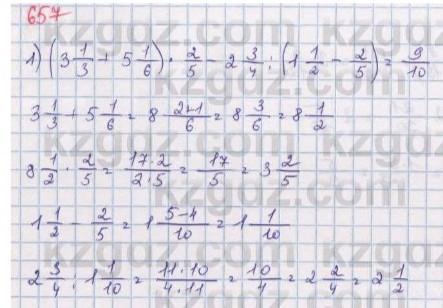 657
1) (3 1/3 + 5 1/6) · 2/5 - 2 3/4 : (1 1/2 - 2/5) = 9/10
3 1/3 + 5 1/6 = 8 2+1/6 = 8 3/6 = 8 1/2
8 1/2 · 2/5 = 17·2/2·5 = 17/5 = 3 2/5
1 1/2 - 2/5 = 1 5-4/10 = 1 1/10
2 3/4 : 1 1/10 = 11·10/4·11 = 10/4 = 2 2/4 = 2 1/2
kzgdz.com